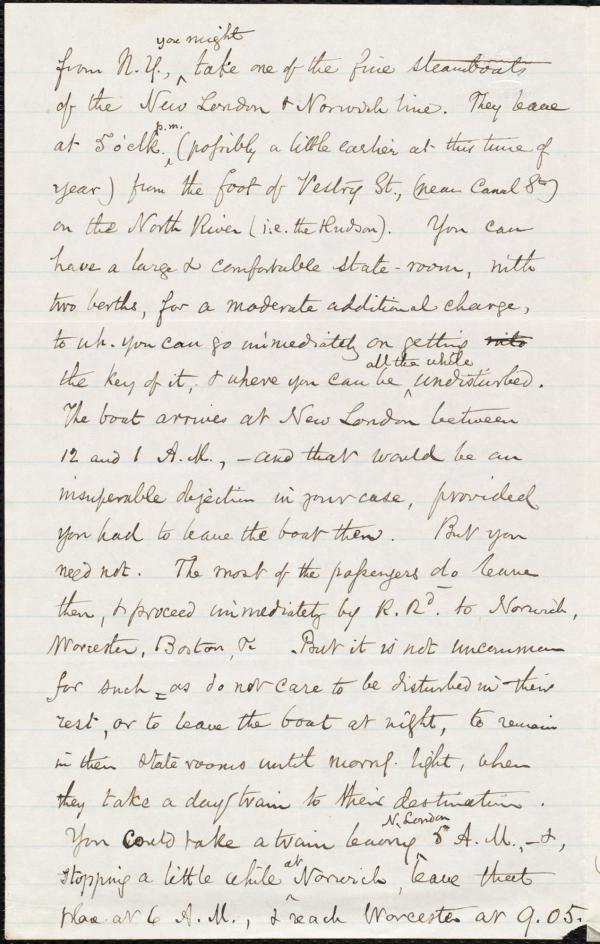 from N.Y., you might take one of the fine steamboats
of the New London & Norwich line. They leave
at 5 o'clk. p.m. (possibly a little earlier at this time of
year) from the foot of Vestry St., (near Canal St.)
on the North River (i.e. the Hudson). You can
have a large & comfortable state-room, with
two berths, for a moderate additional charge,
to wh. you can go immediately on getting into
the key of it, & where you can be all the while undisturbed.
The boat arrives at New London between
12 and 1 A.M., – and that would be an
insuperable objection in your case, provided
you had to leave the boat then. But you
need not. The most of the passengers do leave
then, & proceed immediately by R. Rd. to Norwich,
Worcester, Boston, &c. But it is not uncommon
for such, as do not care to be disturbed in their
rest, or to leave the boat at night, to remain
in their state rooms until morng. light, when
they take a day train to their destination.
You could take a train leaving N. London 5 A.M., – &,
stopping a little while at Norwich, leave that
place at 6 A.M., & reach Worcester at 9.05.